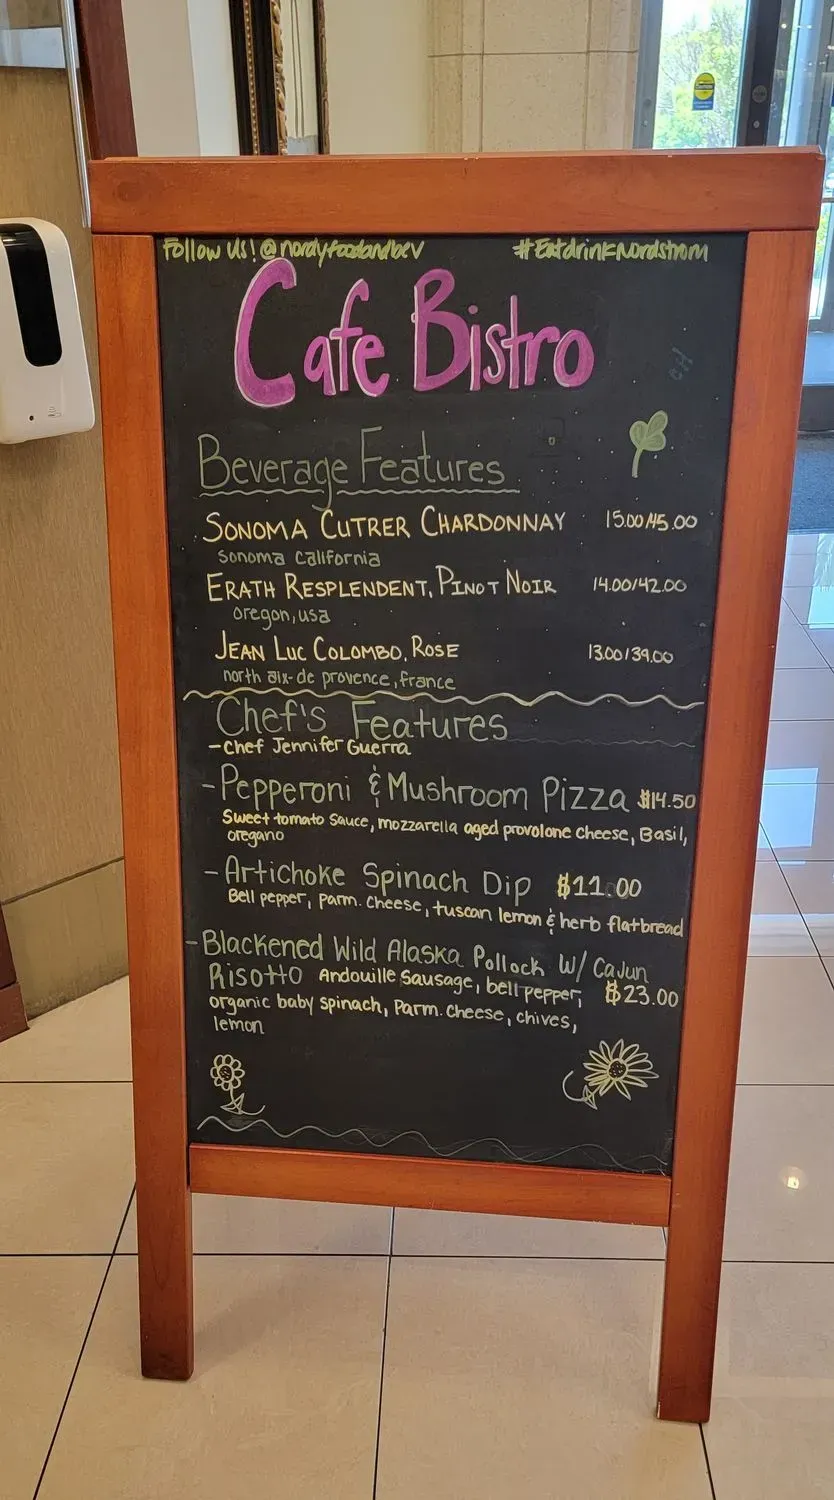 Follow Us! @nordyfoodandbev #EatdrinkNordstrom
Cafe Bistro
Beverage Features
SONOMA CUTRER CHARDONNAY 15.00/45.00
Sonoma California
ERATH RESPLENDENT, PINOT NOIR 14.00/42.00
oregon, usa
JEAN LUC COLOMBO, ROSE 13.00/39.00
north aix-de provence, france
Chef's Features
-Chef Jennifer Guerra
-Pepperoni & Mushroom Pizza $14.50
Sweet tomato Sauce, mozzarella aged provolone cheese, Basil,
oregano
-Artichoke Spinach Dip $11.00
Bell pepper, parm. cheese, tuscan lemon & herb flatbread
-Blackened Wild Alaska Pollock W/ Cajun
Risotto Andouille Sausage, bell pepper, $23.00
organic baby spinach, Parm. cheese, chives,
lemon